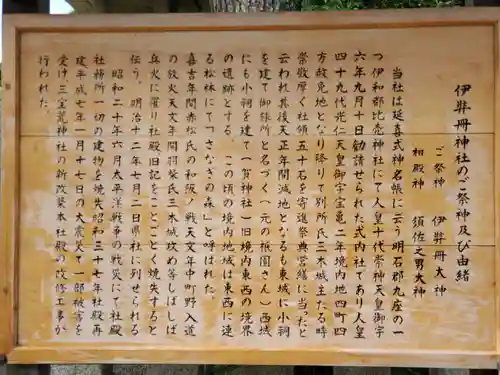 伊弉冊神社のご祭神及び由緒
ご祭神 伊弉冊大神
相殿神 須佐之男大神
当社は延喜式神名帳に云う明石郡九座の一
つ伊和都比売神社にて人皇十代崇神天皇御宇
六年九月十日勧請せられた式内社であり人皇
四十九代光仁天皇御宇宝亀二年境内地四町四
方赦免地となり降りて別所氏三木城主たる時
崇敬厚く社領五十石を寄進祭典営繕に当ったと
云われ其後天正年間減地となるも東域に小祠
を建て御旅所と名づく(元の祇園さん)西域
にも小祠を建て(一賀神社)旧境内東西の境界
の遺跡とする。この頃の境内地域は東西に連
る松林にて「さなぎの森」と呼ばれた。
嘉吉年間赤松氏の和坂ノ戦天文年中町野入道
の放火天文年間羽柴氏三木城攻め等しばしば
兵火に罹り社殿旧記をことごとく焼失すると
伝う。明治十二年七月二日県社に列せられる
昭和二十年六月太平洋戦争の戦災にて社殿
社務所一切の建物を焼失昭和三十七年社殿再
建平成七年一月十七日の大震災で一部被害を
受け三宝荒神社の新改築本社殿の改修工事が
行われた。